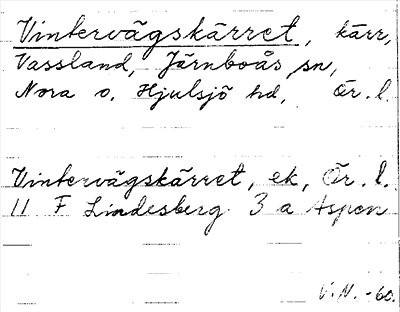 Vintervägskärret, kärr,
Vassland, Järnboås sn,
Nora o. Hjulsjö hd, Ör. l.
Vintervägskärret, ek, Ör. l.
11 F Lindesberg 3 a Aspen
V.N. -60.